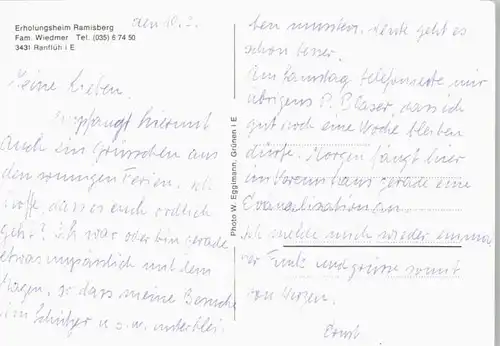 Erholungsheim Ramisberg
Fam. Wiedmer Tel. (035) 6 74 50
3431 Ranflüh i E
den 10. 2.
Meine Lieben.
Empfangt hiermit
auch ein Grüsschen aus
den sonnigen Ferien. Ich
hoffe, dass es euch ordlich
geht? Ich war oder bin gerade
etwas unpässlich mit dem
Magen, so dass meine Besuche
im Schützer u.s.w. unterblei-
Photo W. Eggimann, Grünen i E
ben mussten. Heute geht es
schon besser.
Am Samstag telefonierte mir
übrigens P. Blaser, dass ich
gut noch eine Woche bleiben
dürfe. Morgen fängt hier
im Vereinshaus gerade eine
Evangelisation an.
Ich melde mich wieder einmal
per Funk und grüsse somit
von Herzen.
Ernst